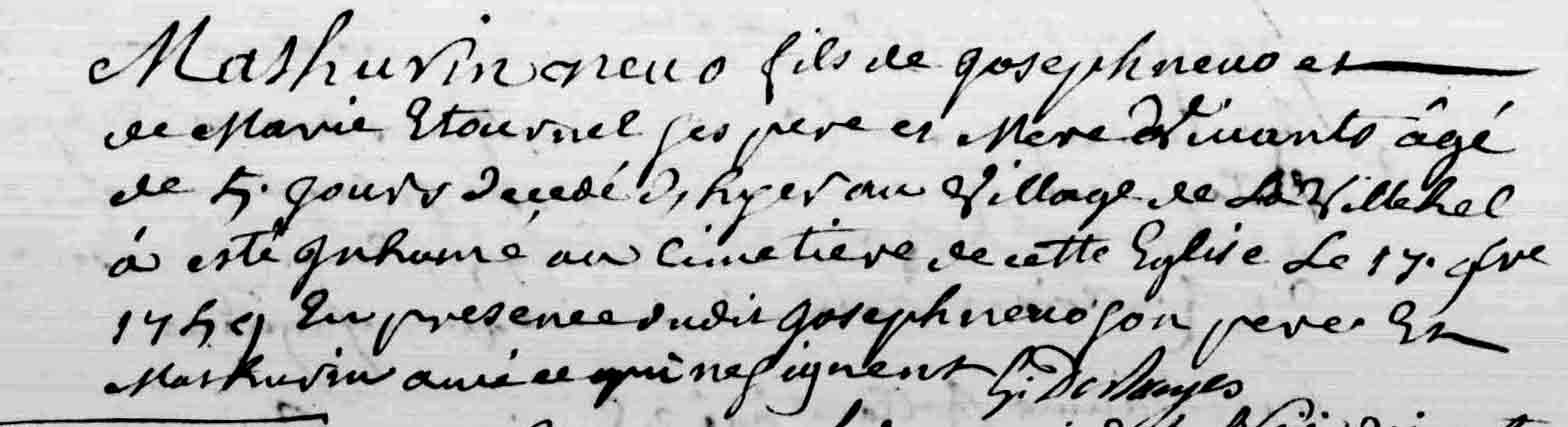 Mathurin neuo fils de Joseph neuo et
de Marie Etournel ses pere et Mere Vivants âgé
de 5. jours decedé d'hyer au Village de La Villehel
á esté Inhumé au Cimetiere de cette Eglise Le 17. 9bre
1759 En presence dudit Joseph neuo son pere. Et
Mathurin qui ne signent